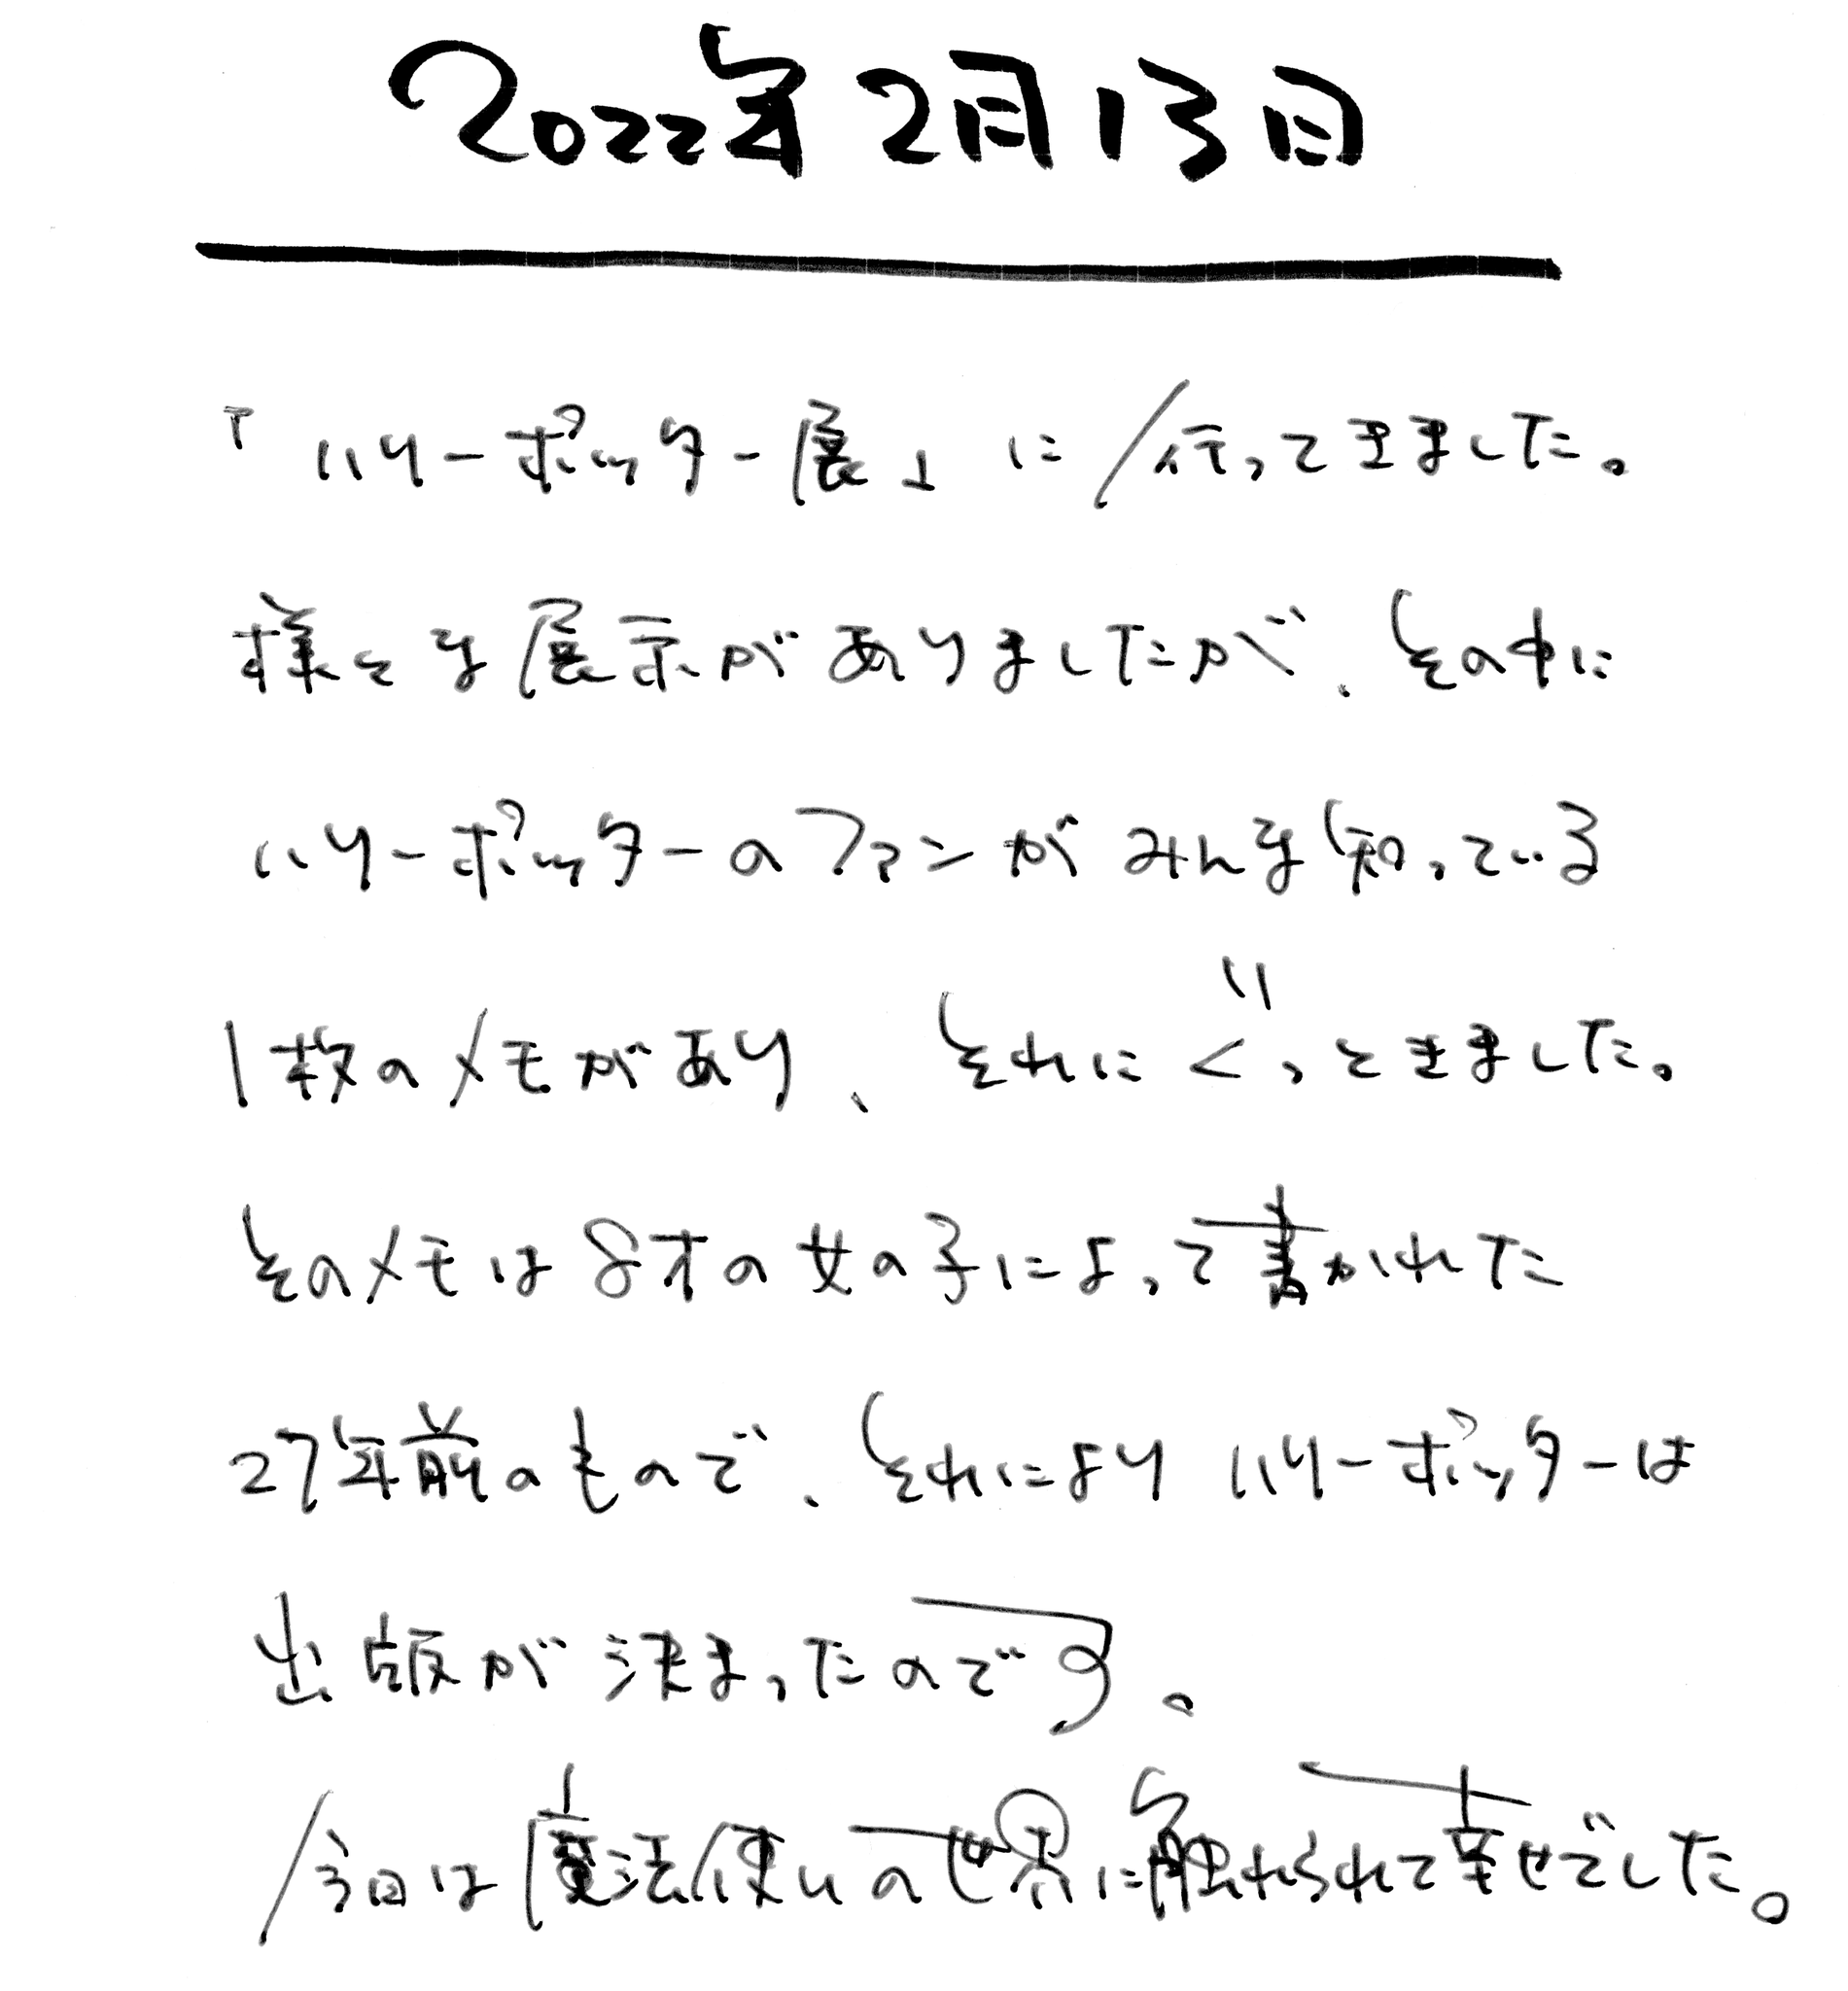 2022年2月13日
「ハリーポッター展」に行ってきました。
様々な展示がありましたが、その中に
ハリーポッターのファンがみんな知っている
1枚のメモがあり、それにぐっときました。
そのメモは8才の女の子によって書かれた
27年前のもので、それによりハリーポッターは
出版が決まったのです。
今回は魔法使いの世界に触れられて幸せでした。